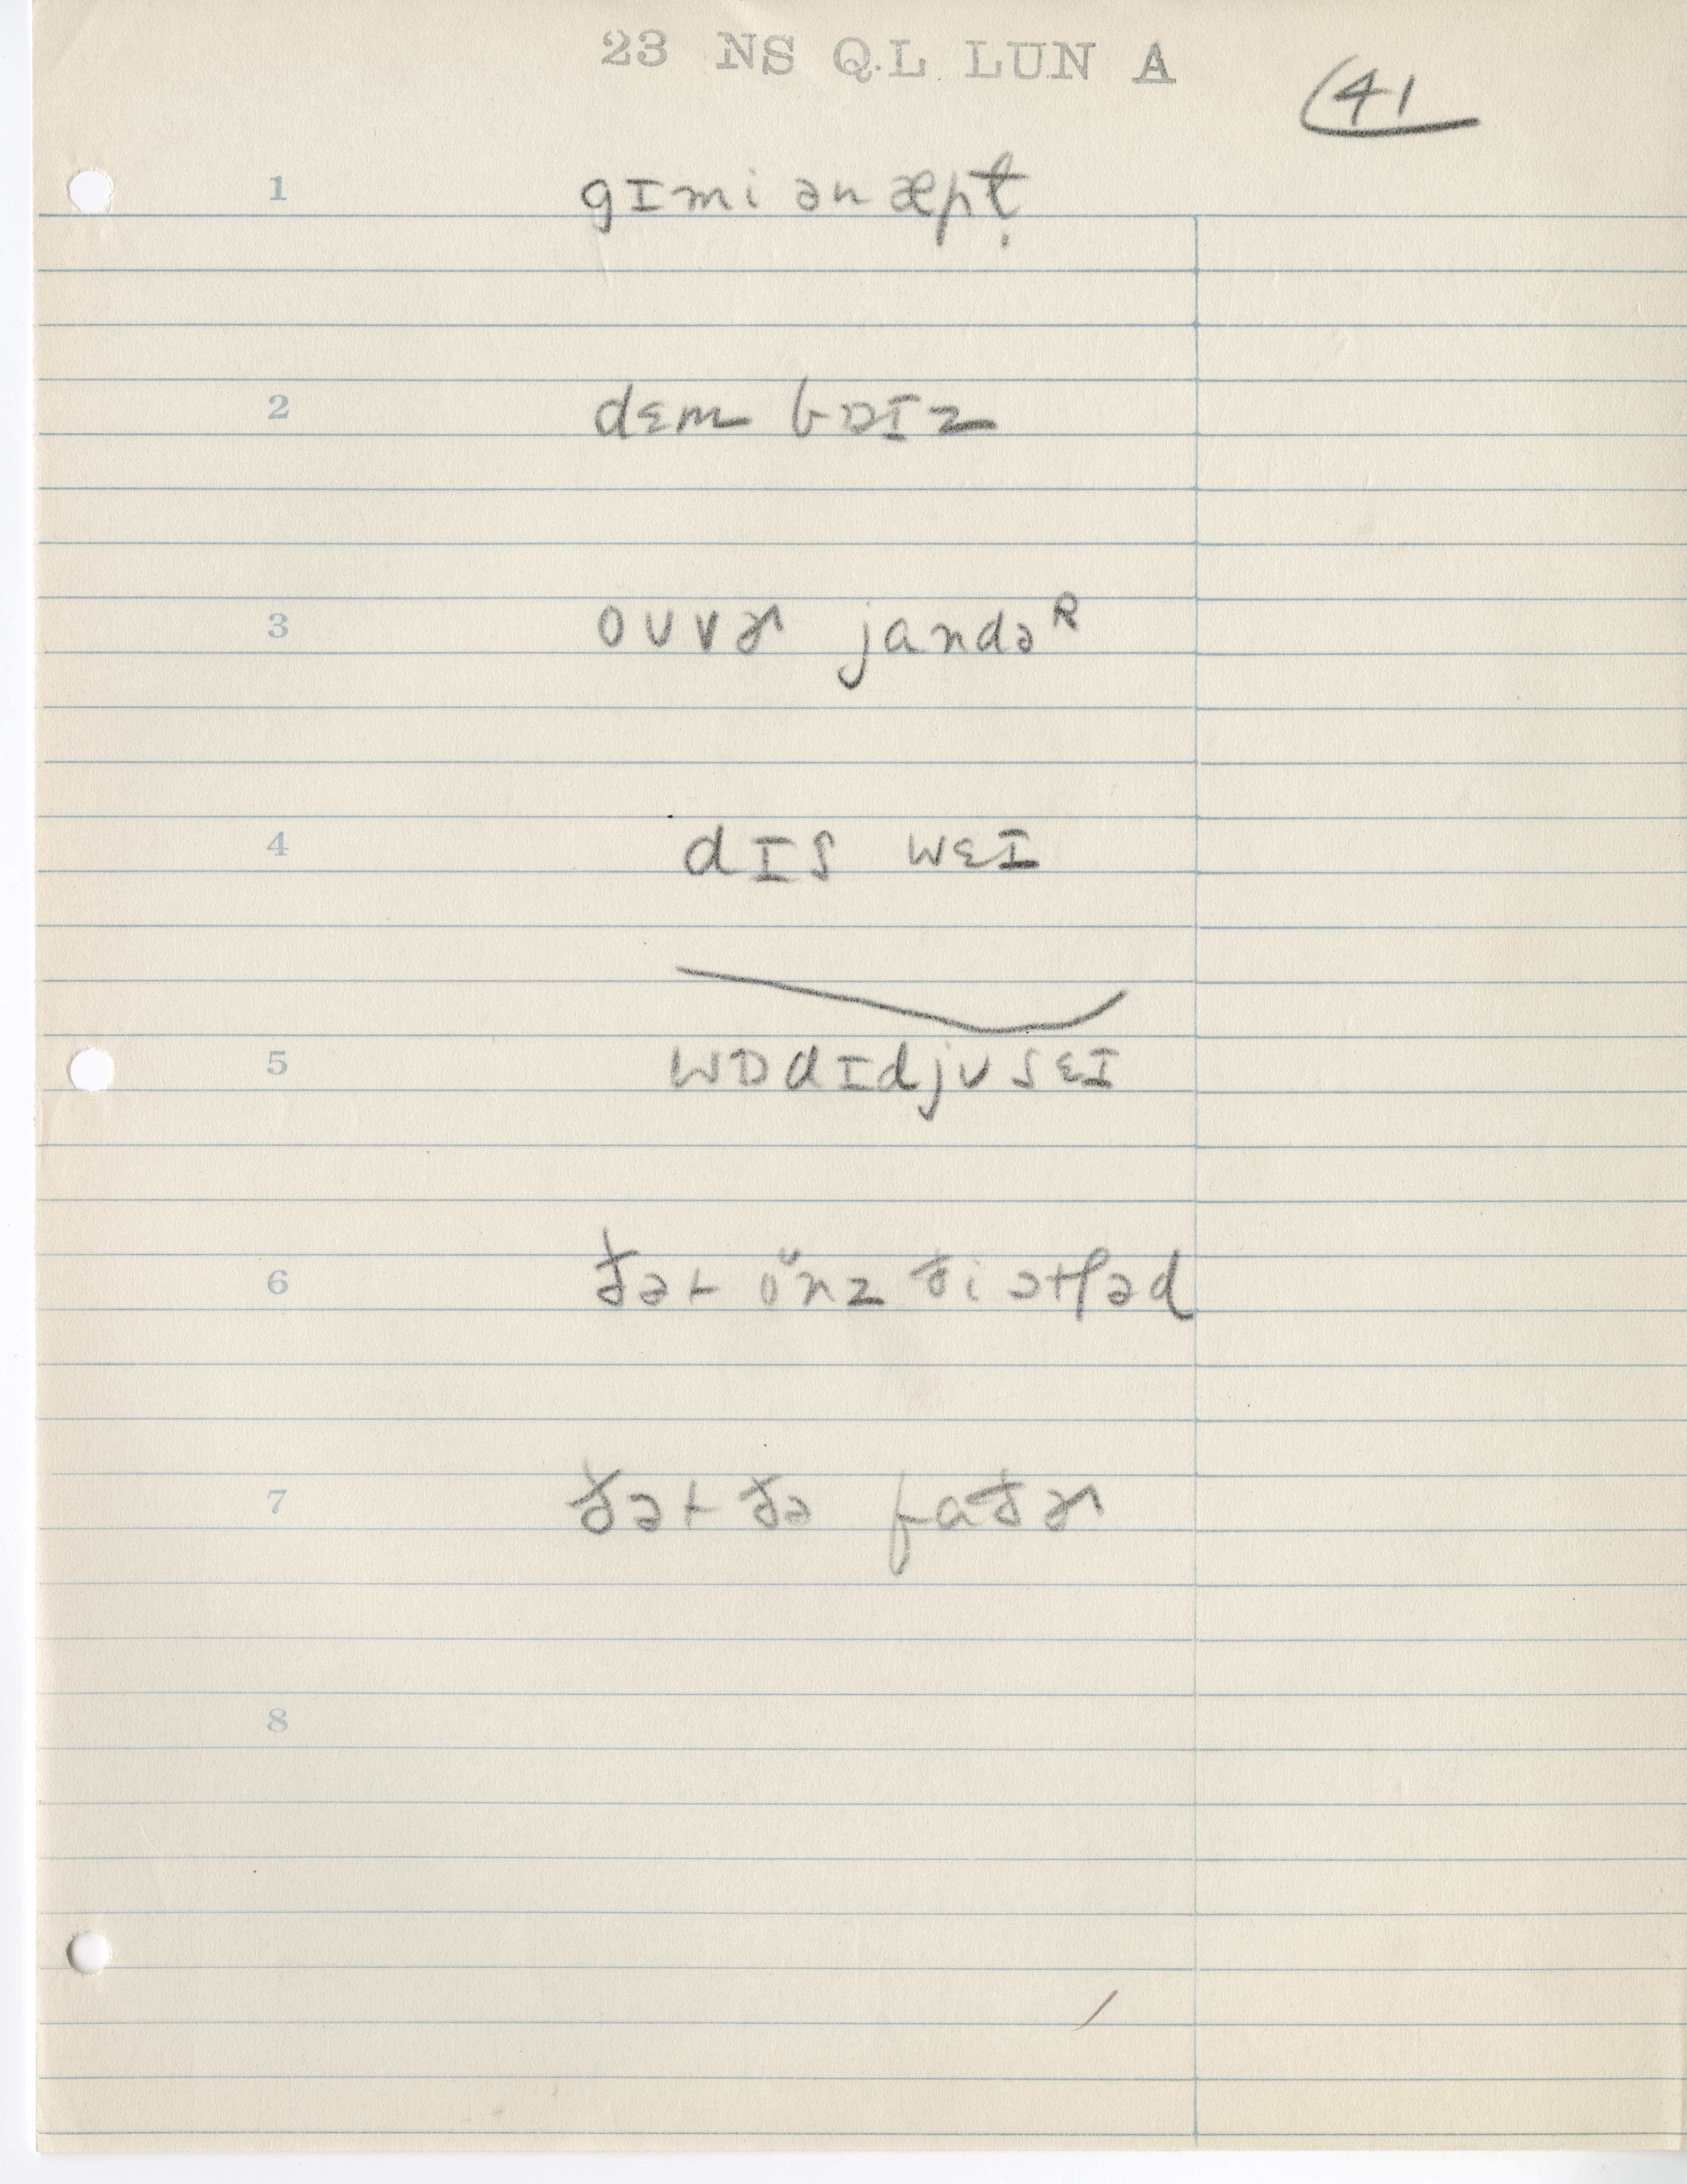 23 NS Q.L. LUN A
(41
1 gɪmi ən æpt̬
2 dɛm bɒɪz
3 oʊvɚ jandəᴿ
4 dɪs wɛɪ
5 wɒdɪdjʊsɛɪ
6 ðət oʊnz ði
7 ðət ðə faðɚ
8